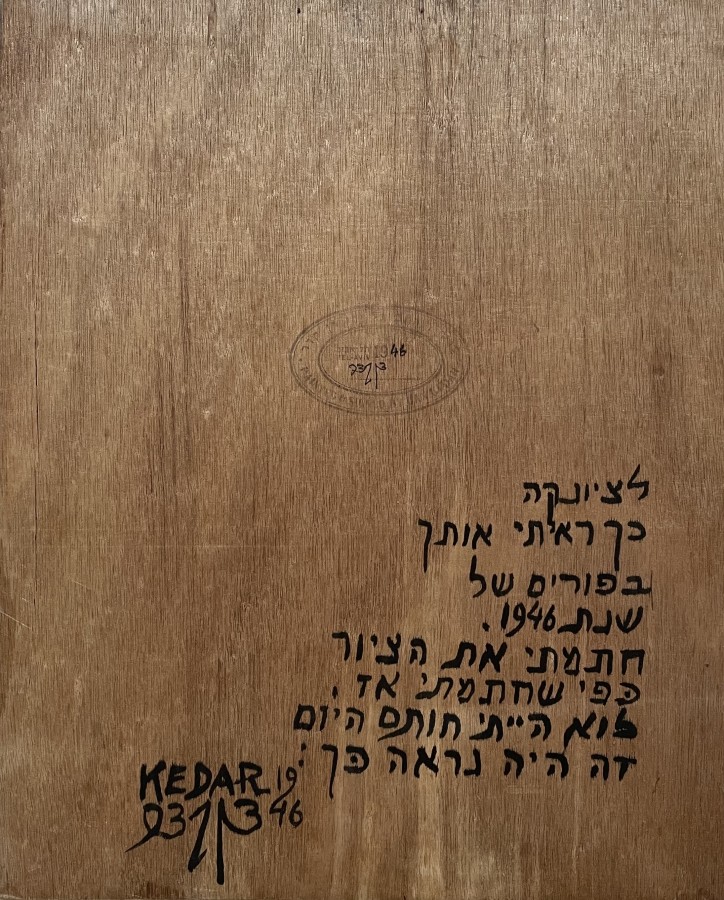 46
לציונקה
כך ראיתי אותך
בפורים של
שנת 1946.
חתמתי את הציור
כפי שחתמתי אז.
לוא הייתי חותם היום
זה היה נראה כך:
KEDAR 19
46